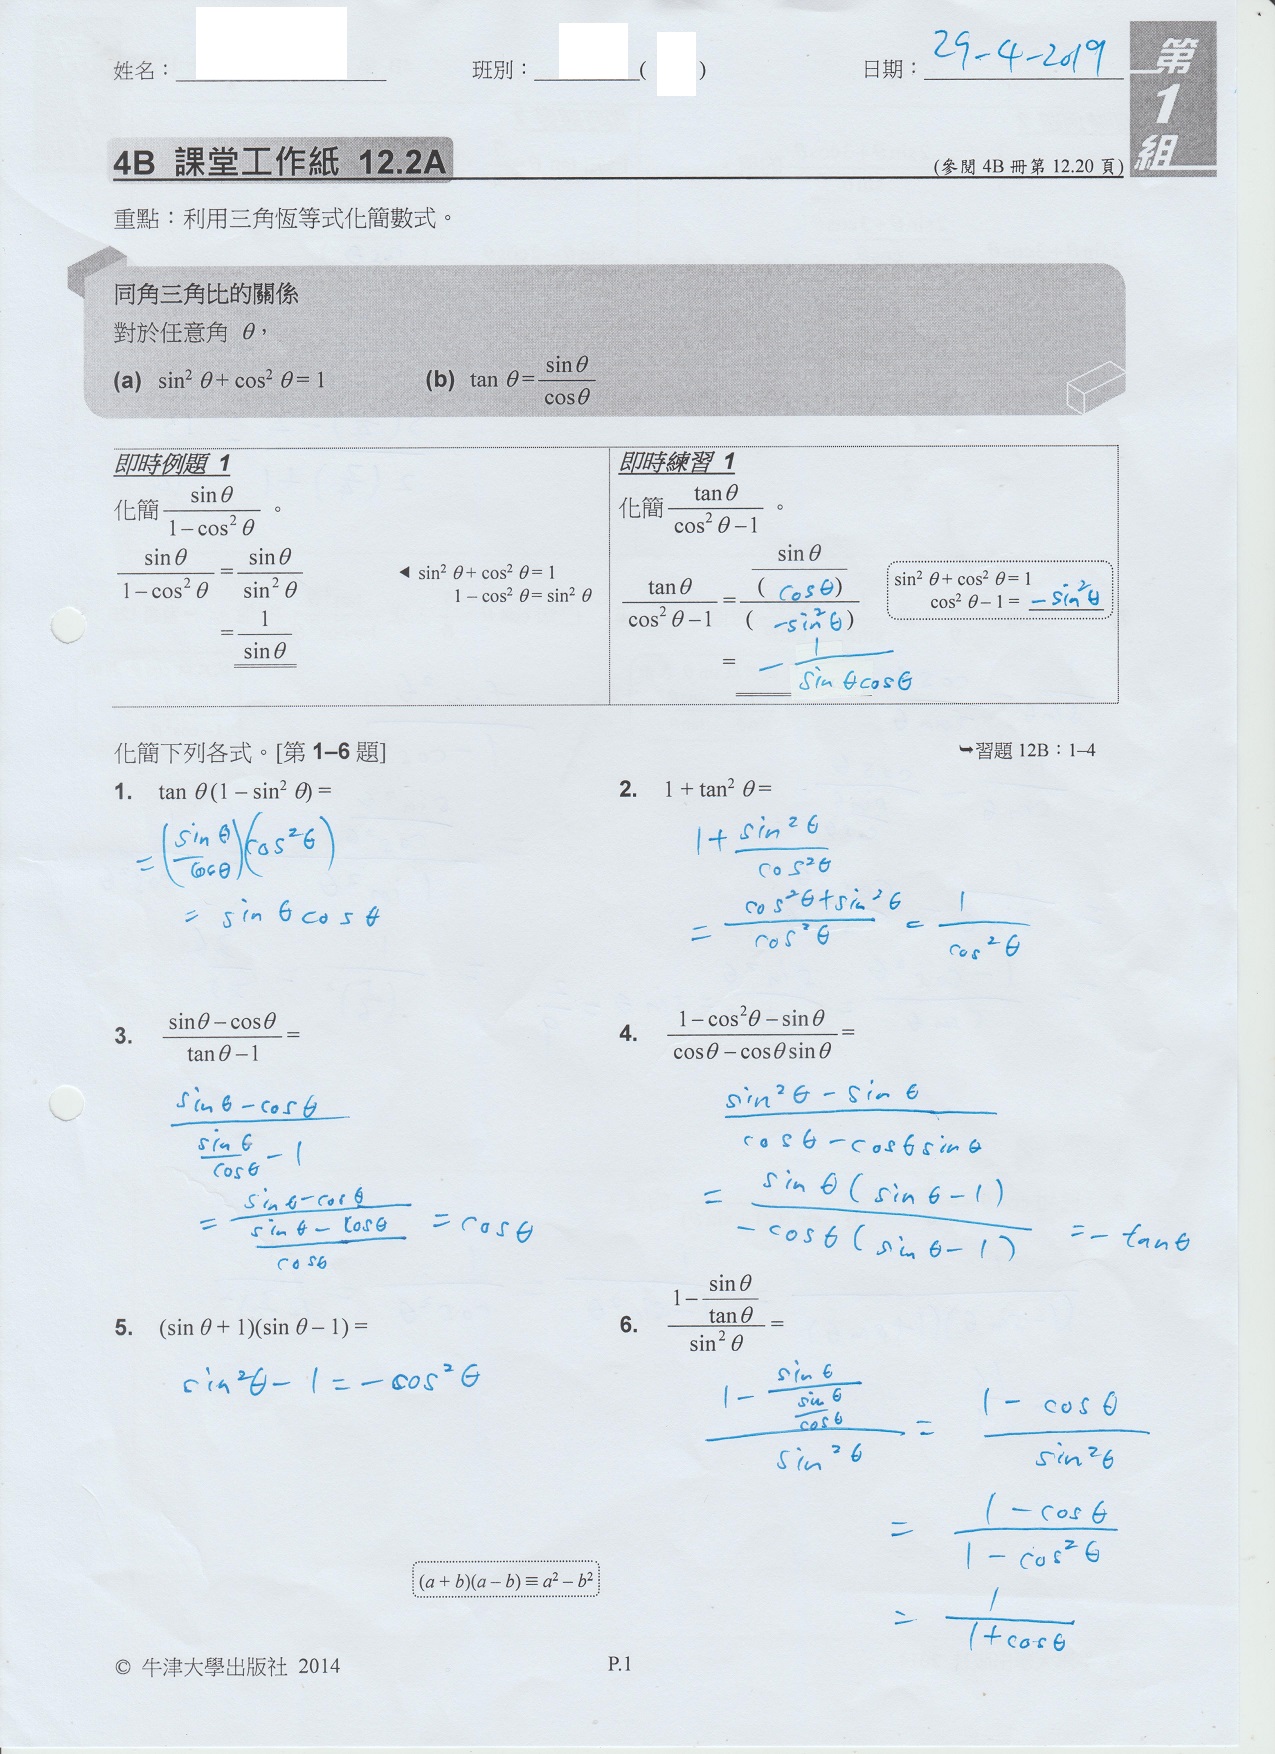 姓名：
班別： ( )
日期： 29-4-2019
第
1
組
4B 課堂工作紙 12.2A
(參閱 4B 冊第 12.20 頁)
重點：利用三角恆等式化簡數式。
同角三角比的關係
對於任意角 θ，
(a) sin² θ + cos² θ = 1 (b) tan θ = sin θ / cos θ
即時例題 1
化簡 sin θ / (1 − cos² θ) 。
sin θ / (1 − cos² θ) = sin θ / sin² θ
◄ sin² θ + cos² θ = 1
1 − cos² θ = sin² θ
= 1 / sin θ
即時練習 1
化簡 tan θ / (cos² θ − 1) 。
tan θ / (cos² θ − 1) = (sin θ / ( cos θ )) / ( −sin² θ )
sin² θ + cos² θ = 1
cos² θ − 1 = −sin² θ
= − 1 / (sin θ cos θ)
化簡下列各式。[第 1–6 題]
➥習題 12B：1–4
1. tan θ (1 − sin² θ) =
= (sin θ / cos θ)(cos² θ)
= sin θ cos θ
2. 1 + tan² θ =
1 + sin² θ / cos² θ
= (cos² θ + sin² θ) / cos² θ = 1 / cos² θ
3. (sin θ − cos θ) / (tan θ − 1) =
(sin θ − cos θ) / (sin θ / cos θ − 1)
= (sin θ − cos θ) / ((sin θ − cos θ) / cos θ) = cos θ
4. (1 − cos² θ − sin θ) / (cos θ − cos θ sin θ) =
(sin² θ − sin θ) / (cos θ − cos θ sin θ)
= sin θ (sin θ − 1) / (−cos θ (sin θ − 1)) = − tan θ
5. (sin θ + 1)(sin θ − 1) =
sin² θ − 1 = − cos² θ
(a + b)(a − b) ≡ a² − b²
6. (1 − sin θ / tan θ) / sin² θ =
(1 − sin θ / (sin θ / cos θ)) / sin² θ = (1 − cos θ) / sin² θ
= (1 − cos θ) / (1 − cos² θ)
= 1 / (1 + cos θ)
© 牛津大學出版社 2014
P.1